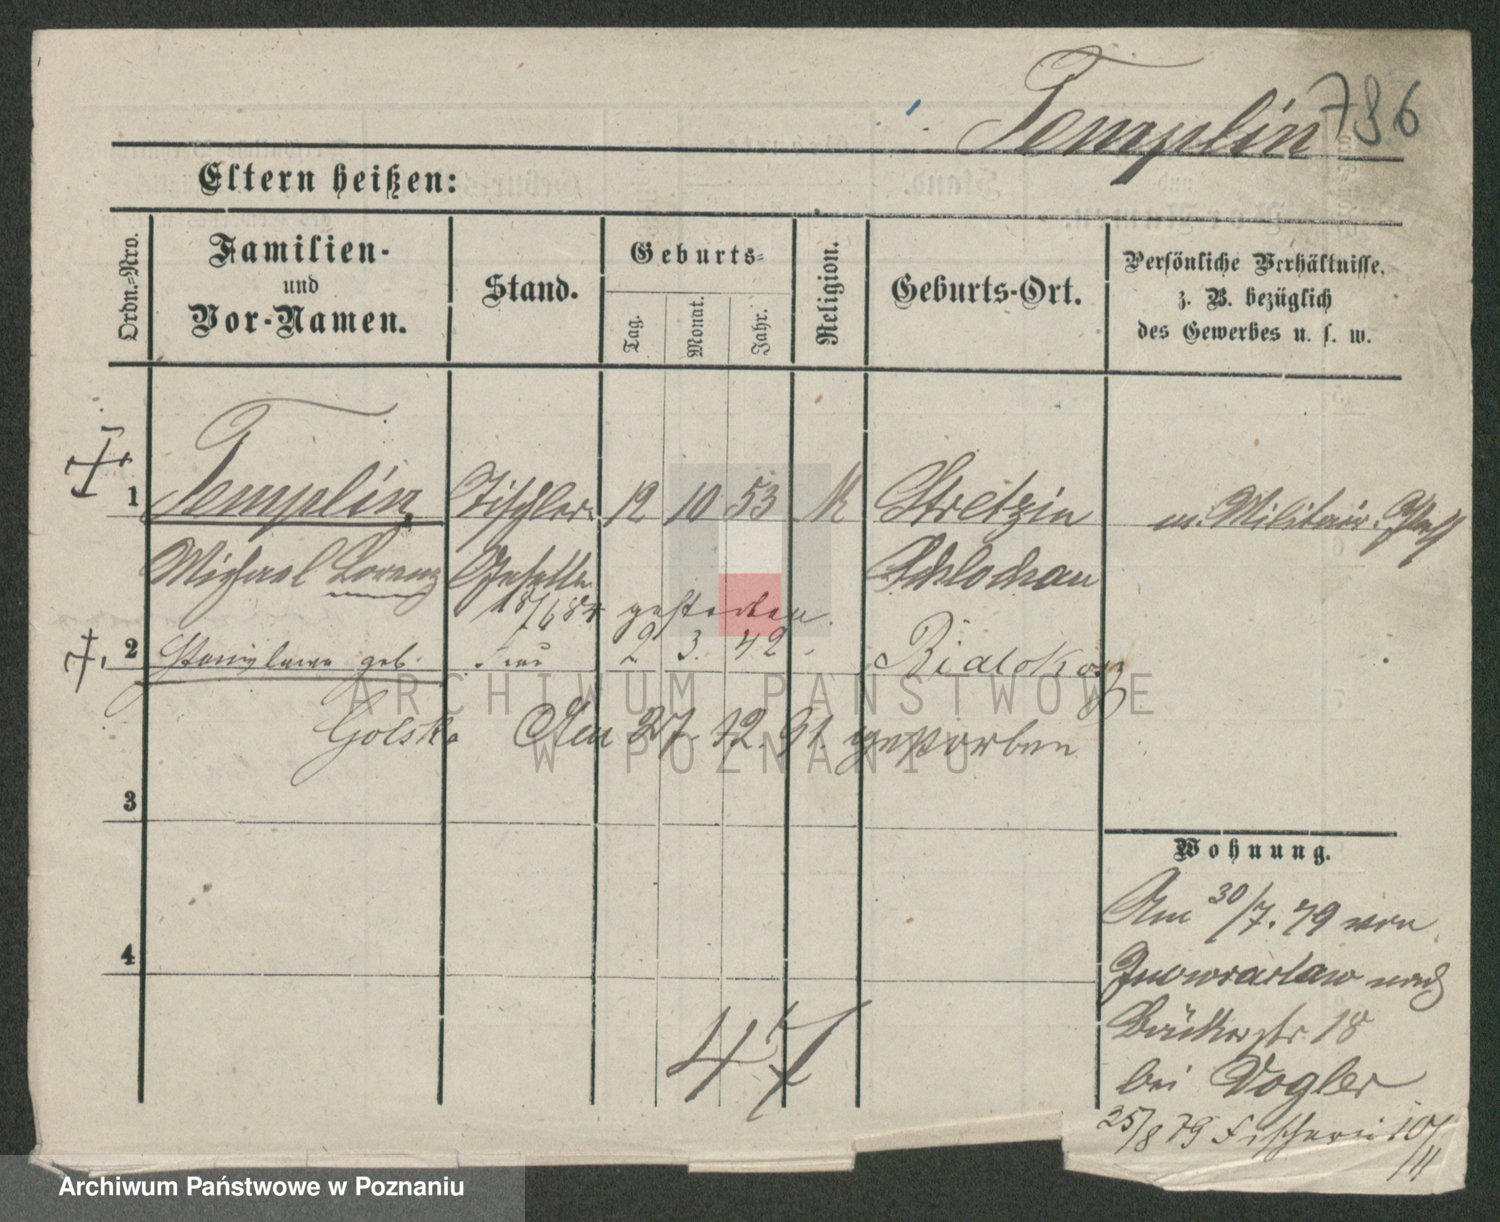 Templin 796
Eltern heißen:
Ordn.-Nro.
Familien-
und
Vor-Namen.
Stand.
Geburts-
Tag.
Monat.
Jahr.
Religion.
Geburts-Ort.
Persönliche Verhältnisse,
z. B. bezüglich
des Gewerbes u. s. w.
1 Templin Tischler 12 10 53 K Stretzin m. Militair-Paß
Michael Lorenz Geselle Schlochau
gestorben.
2 Stanislawa geb. Frau 2 3. 42 Bialokosz
Golska Am 27. 12. 91. gestorben
3
4
Wohnung.
Am 30/7. 79 von
Inowraclaw nach
Bäckerstr. 18
bei Vogler
25/8 79 Fischerei 10/11
47
ARCHIWUM PAŃSTWOWE
W POZNANIU
Archiwum Państwowe w Poznaniu